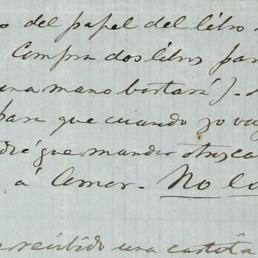 s del papel del libro.
Compra dos libros par
una mano bastará).
para que cuando yo vay
dré que mandar otras ca
á Amor. No lo
recibido una cartita